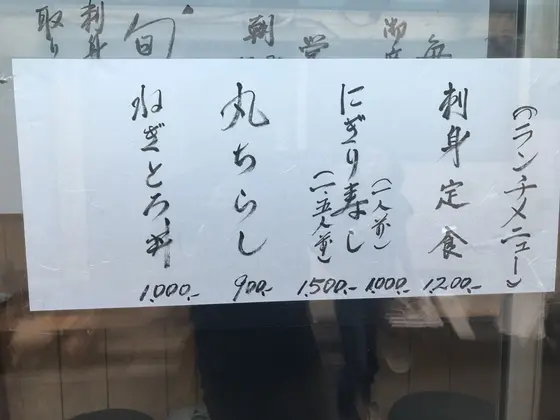 (ランチメニュー)
刺身定食
1,200.-
にぎり寿し
(一人前)
1,000.-
(一.五人前)
1,500.-
丸ちらし
900.-
ねぎとろ丼
1,000.-
旬
刺身
取り